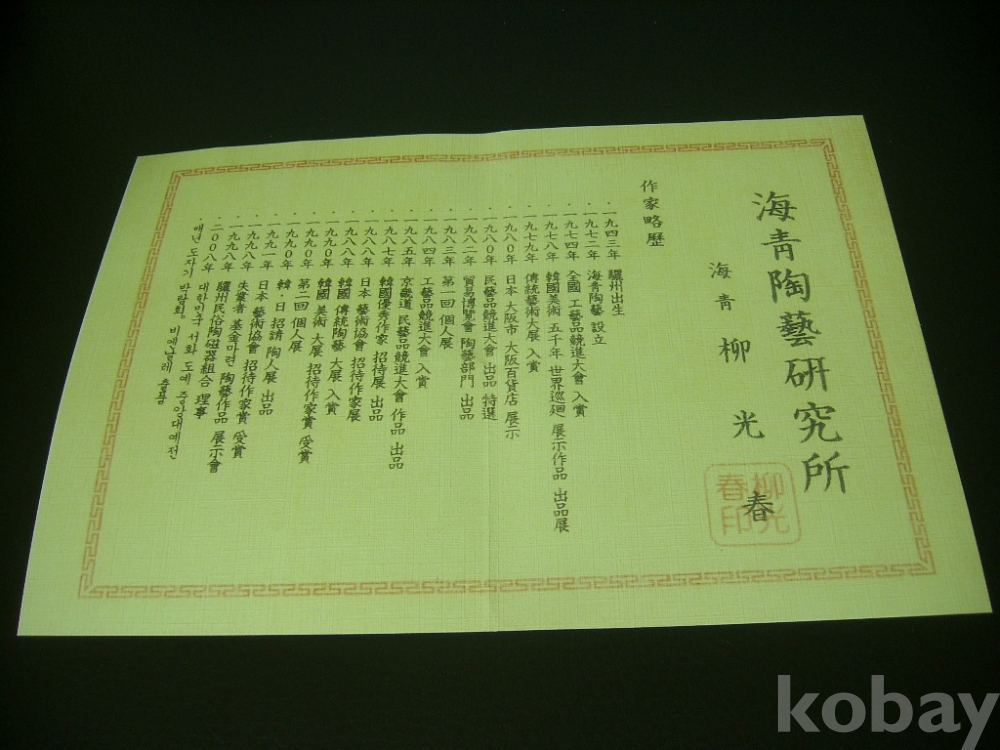 海靑陶藝硏究所
海靑 柳光春
柳光春印
作家略歷
· 一九四三年 驪州出生
· 一九七二年 海靑陶藝 設立
· 一九七四年 全國 工藝品競進大會 入賞
· 一九七八年 韓國美術 五千年 世界巡廻 展示作品 出品展
· 一九七九年 傳統藝術大展 入賞
· 一九八○年 日本 大阪市 大阪百貨店 展示
· 一九八○年 民藝品競進大會 出品 特選
· 一九八二年 貿易博覽會 陶藝部門 出品
· 一九八三年 第一回 個人展
· 一九八四年 工藝品競進大會 入賞
· 一九八五年 京畿道 民藝品競進大會 作品 出品
· 一九八七年 韓國優秀作家 招待展 出品
· 一九八八年 日本 藝術協會 招待作家展
· 一九八八年 韓國 傳統陶藝 大展 入賞
· 一九九○年 韓國 美術 大展 招待作家賞 受賞
· 一九九○年 第二回 個人展
· 一九九一年 韓·日 招請 陶人展 出品
· 一九九八年 日本 藝術協會 招待作家賞 受賞
· 一九九八年 失業者 基金마련 陶藝作品 展示會
· 二○○八年 驪州民俗陶磁器組合 理事
대한민국 서화 도예 중앙대예전
· 매년 도자기 박람회, 비엔날레 출품
kobay